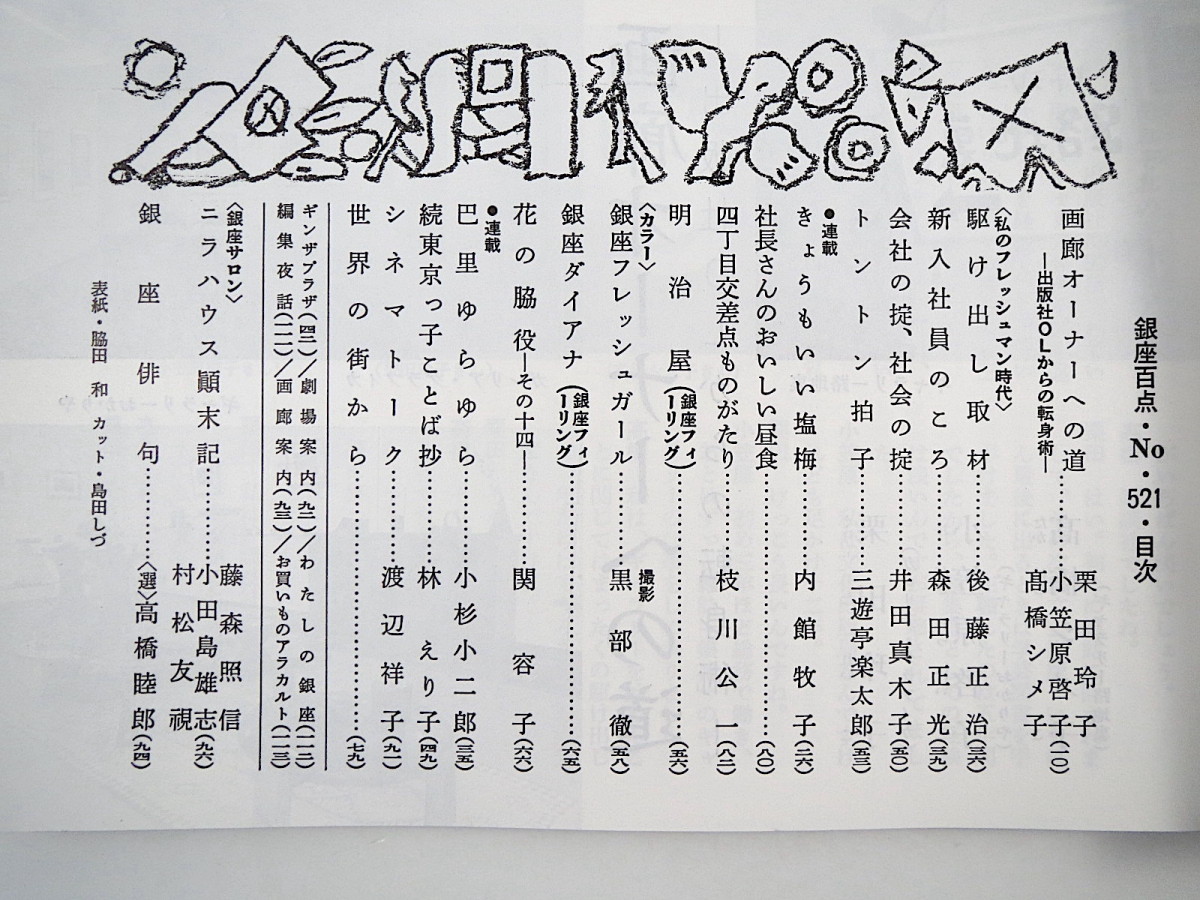 銀座百点・No・521・目次
画廊オーナーへの道……栗田玲子
小笠原啓子(一〇)
髙橋シメ子
―出版社OLからの転身術―
〈私のフレッシュマン時代〉
駆け出し取材……後藤正治(三六)
新入社員のころ……森田正光(三九)
会社の掟、社会の掟……井田真木子(五〇)
トントン拍子……三遊亭楽太郎(五三)
●連載
きょうもいい塩梅……内館牧子(二六)
社長さんのおいしい昼食……(八〇)
四丁目交差点ものがたり……枝川公一(八二)
明治屋(銀座フィーリング)……(五六)
〈カラー〉
銀座フレッシュガール……撮影 黒部徹(五八)
銀座ダイアナ(銀座フィーリング)……(六五)
花の脇役―その十四―……関容子(六六)
●連載
巴里ゆらゆら……小杉小二郎(三五)
続東京っ子ことば抄……林えり子(四九)
シネマトーク……渡辺祥子(九一)
世界の街から……(七九)
ギンザプラザ(四三)／劇場案内(九二)／わたしの銀座(一一二)
編集夜話(一一一)／画廊案内(九三)／お買いものアラカルト(一一三)
〈銀座サロン〉
ニラハウス顚末記……藤森照信
小田島雄志(九六)
村松友視
銀座俳句……〈選〉高橋睦郎(九四)
表紙・脇田 和 カット・島田しづ